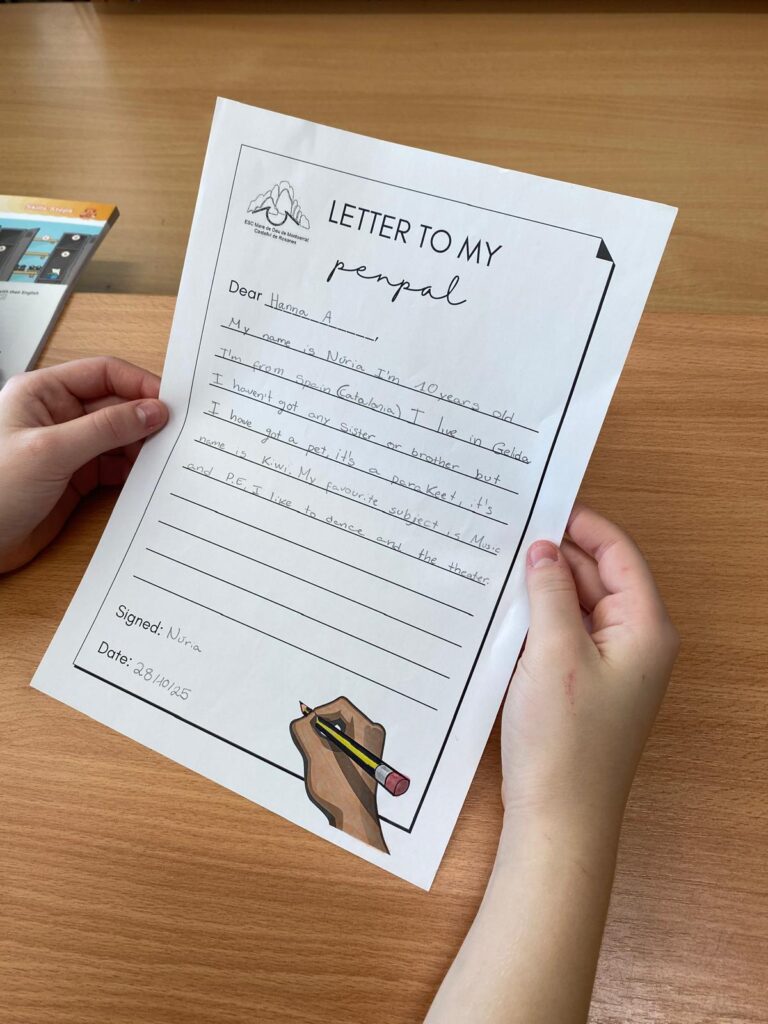 ESC Mare de Deu de Montserrat
Castellví de Rosanes
LETTER TO MY
penpal
Dear Hanna A ,
My name is Núria I'm 10 years old
I'm from Spain (Catalania) I live in Gelida
I haven't got any sister or brother but
I have got a pet, it's a parakeet, it's
name is Kiwi. My favourite subject is Music
and P.E. I like to dance and the theater.
Signed: Núria
Date: 28/10/25
with their English